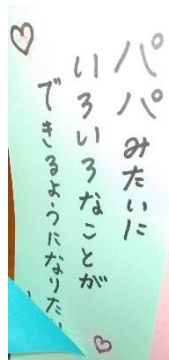 パパみたいに
いろいろなことが
できるようになりたい